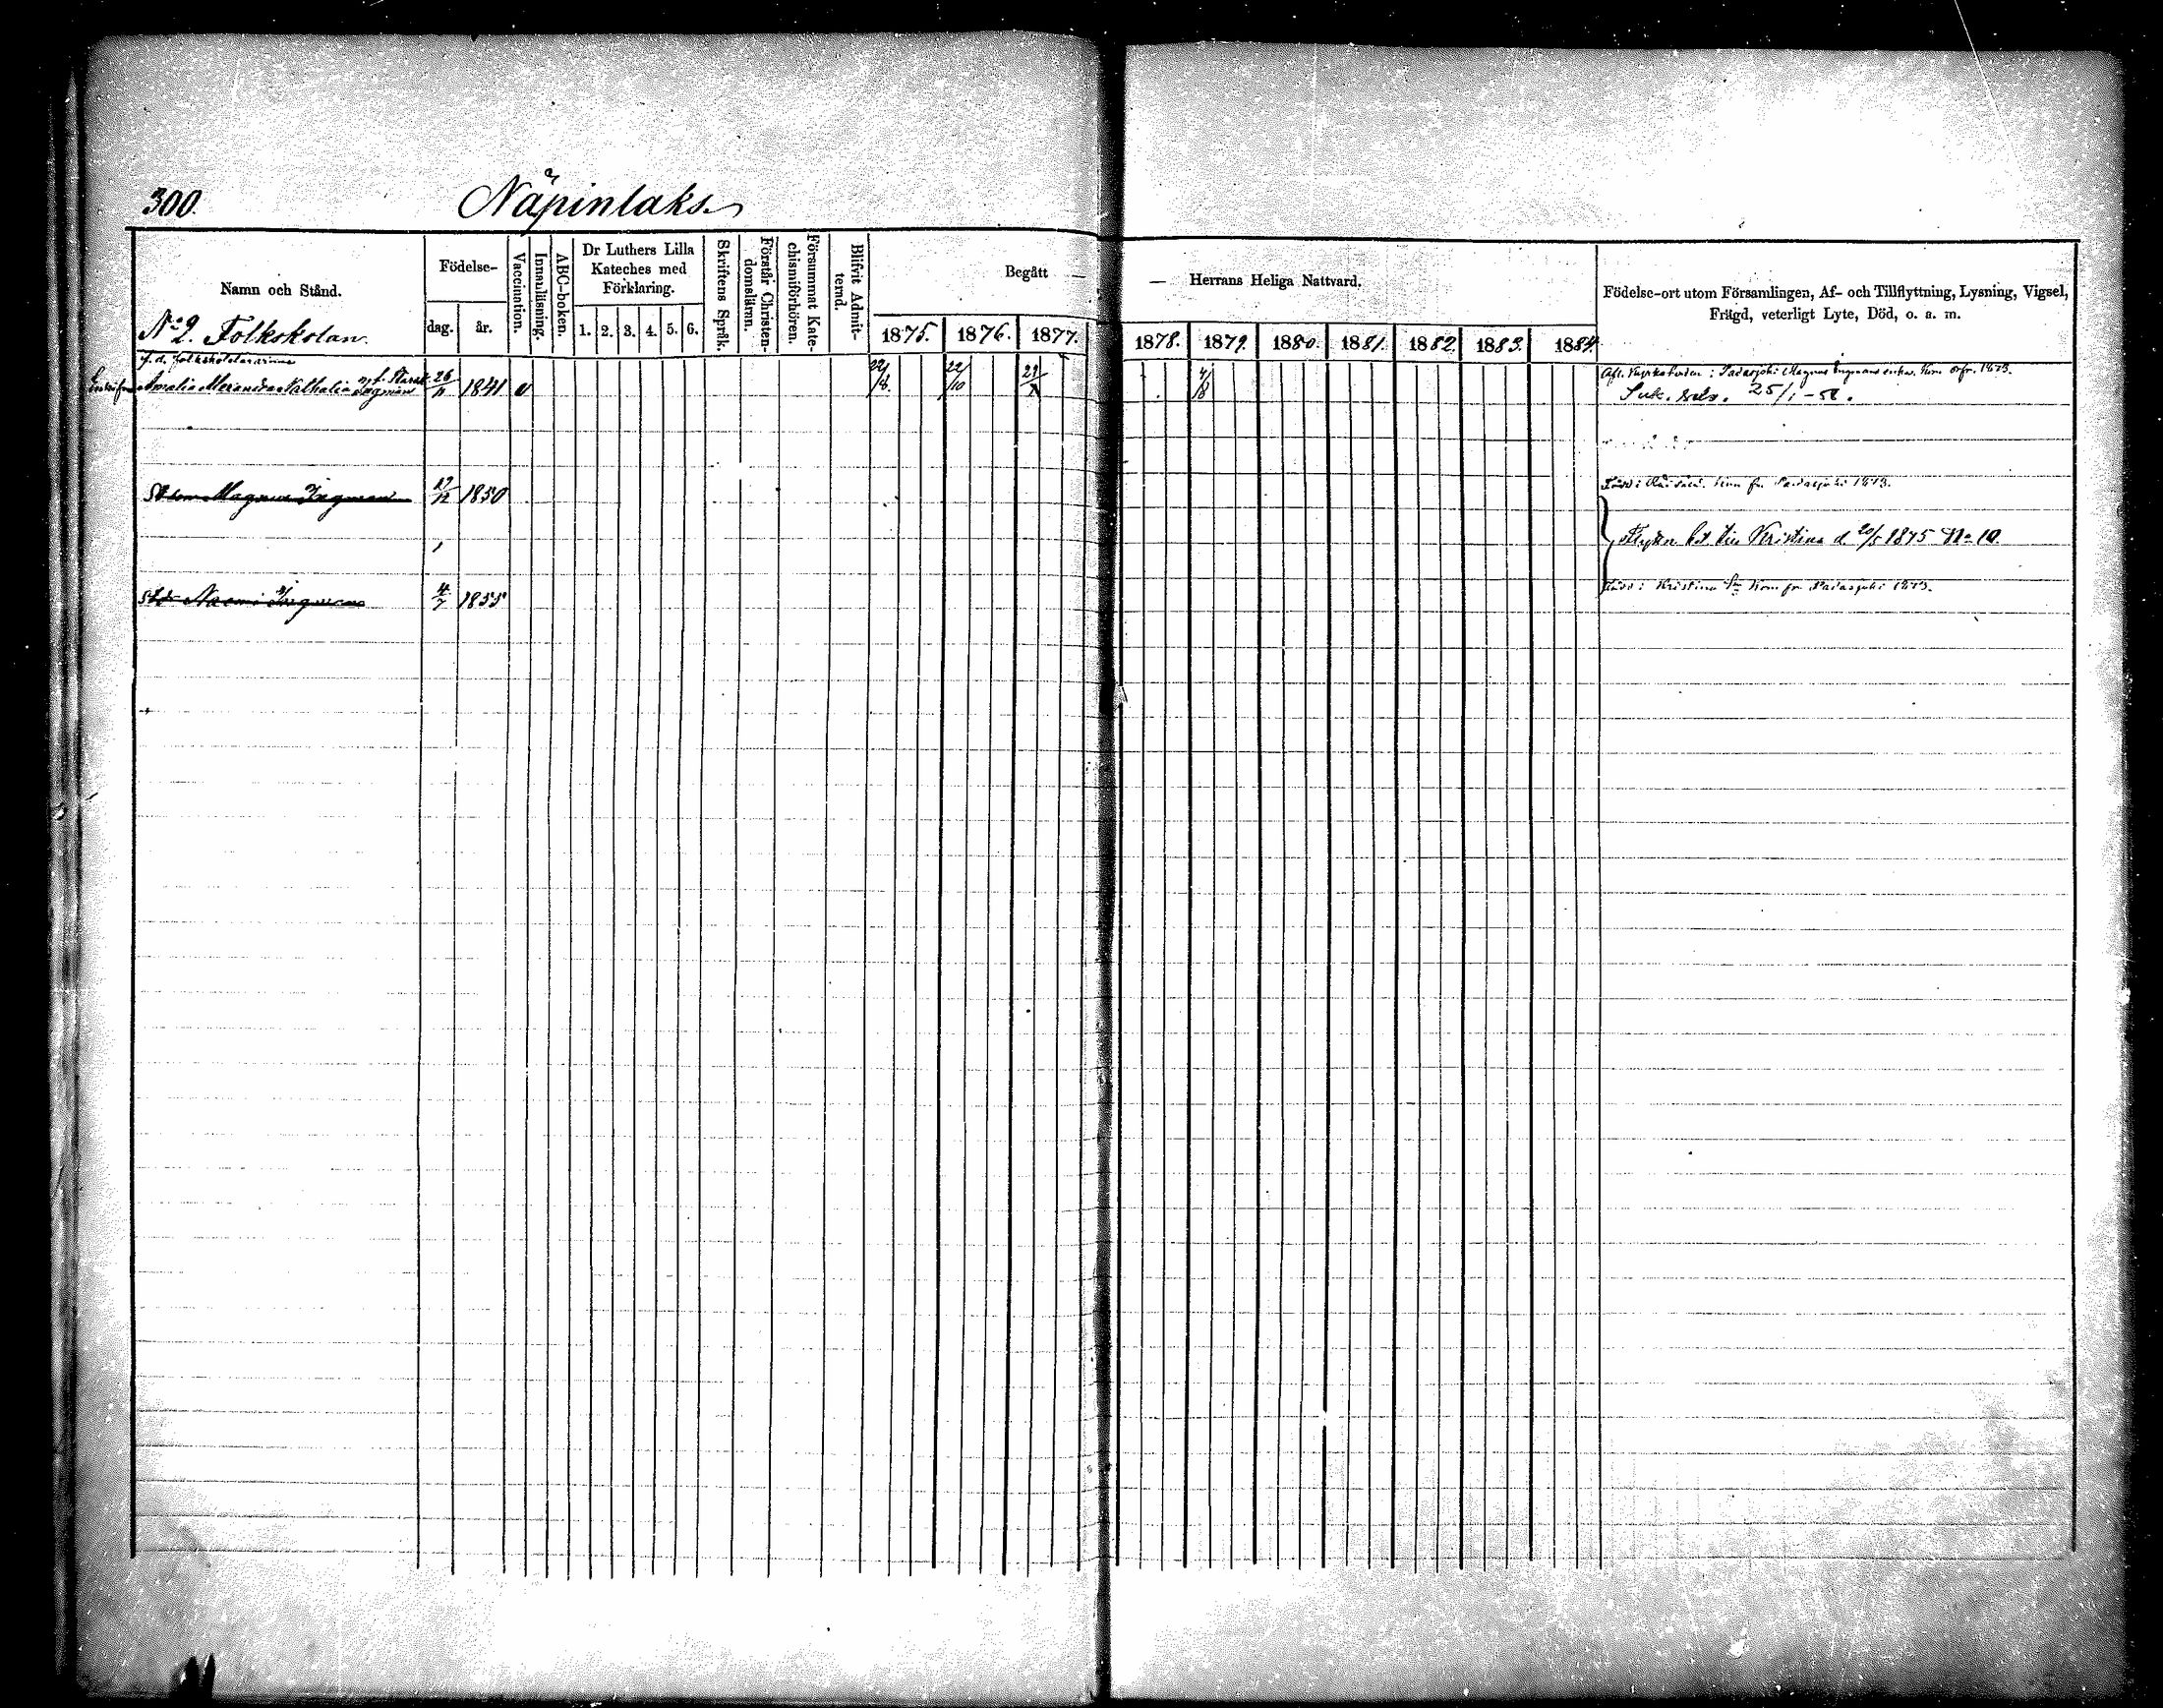 300.
Näpinlaks
Namn och Stånd.
Födelse-
dag.
år.
Vaccination.
Innanläsning.
ABC-boken.
Dr Luthers Lilla
Kateches med
Förklaring.
1. 2. 3. 4. 5. 6.
Skriftens Språk.
Förstår Christen-
domslärn.
Försummat Kate-
chismiförhören.
Blifvit Admit-
terad.
Begått —
— Herrans Heliga Nattvard.
1875. 1876. 1877.
1878. 1879. 1880. 1881. 1882. 1883. 1884.
Födelse-ort utom Församlingen, Af- och Tillflyttning, Lysning, Vigsel,
Frägd, veterligt Lyte, Död, o. a. m.
No 2. Folkskolan.
f.d. folkskolelärarinna
Enkefru Amalia Alexandra Nathalia Ingman 26/11 1841 v 22/10 4/8
Padasjoki Magnus Ingmans enka. 1873.
25/1 - 58.
Magnus Ingman 12 1850
Padasjoki 1873.
Kristina d. 20/5 1875 No 10.
Naemi Ingman 4/7 1855
Kristina Kom fr. Padasjoki 1873.